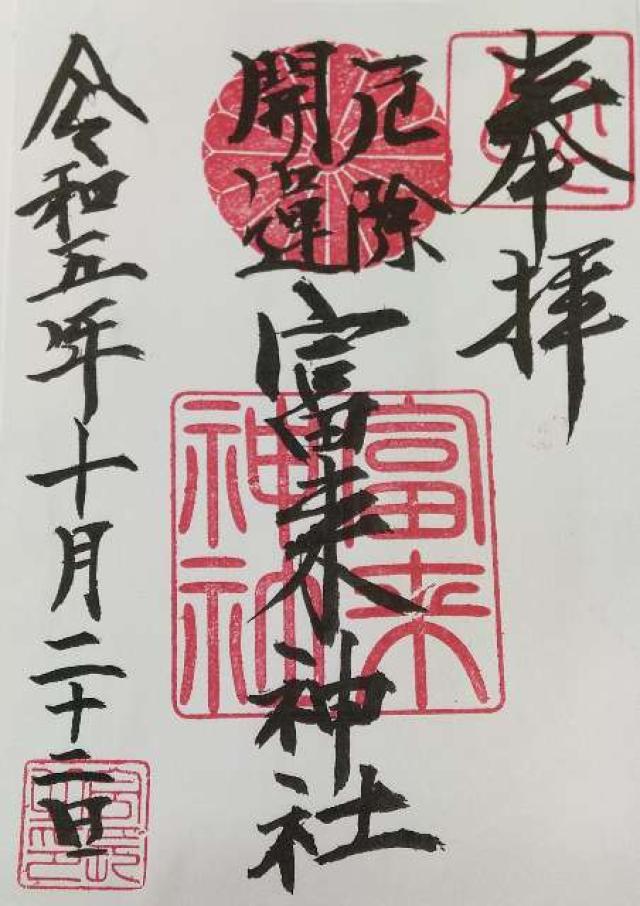 奉拝
厄除
開運
富来神社
富来
神社
令和五年十月二十二日